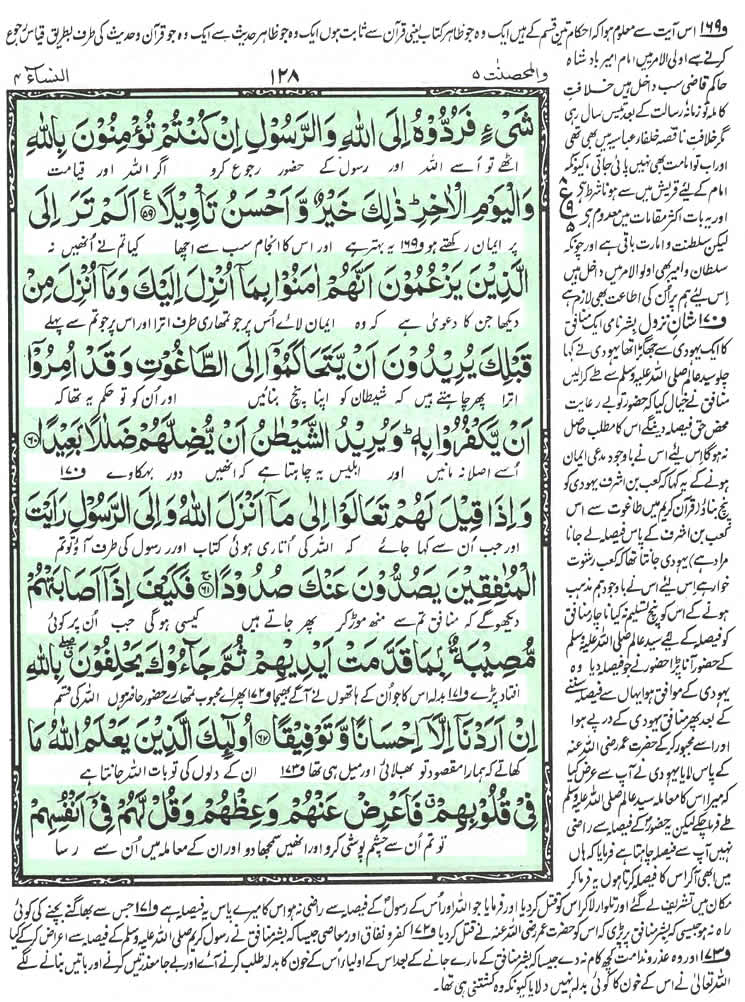 و۱۶۹ اس آیت سے معلوم ہوا کہ احکام تین قسم کے ہیں ایک وہ جو ظاہر کتاب یعنی قرآن سے ثابت ہوں ایک وہ جو ظاہر حدیث سے ایک وہ جو قرآن و حدیث کی طرف بطریق قیاس رجوع
کرنے سے اولی الامر میں امام امیر بادشاہ
حاکم قاضی سب داخل ہیں خلافتِ
کاملہ تو زمانۂ رسالت کے بعد تیس سال رہی
مگر خلافتِ ناقصہ خلفاء عباسیہ میں بھی تھی
اور اب تو امامت بھی نہیں پائی جاتی، کیونکہ
امام کے لئے قریش میں سے ہونا شرط ہے
اور یہ بات اکثر مقامات میں معدوم ہے
لیکن سلطنت و امارت باقی ہے اور چونکہ
سلطان و امیر بھی اولو الامر میں داخل ہیں
اِس لئے ہم پر اُن کی اطاعت بھی لازم ہے
و۱۷۰ شانِ نزول بشر نامی ایک منافق
کا ایک یہودی سے جھگڑا تھا یہودی نے کہا
چلو سید عالم صلی اللہ علیہ وسلم سے طے کرالیں
منافق نے خیال کیا کہ حضور تو بے رعایت
محض حق فیصلہ دینگے اس کا مطلب حاصل
نہ ہوگا اِس لئے اس نے باوجود مدعی ایمان
ہونے کے یہ کہا کہ کعب بن اشرف یہودی کو
پنچ بناؤ (قرآن کریم میں طاغوت سے اس
کعب بن اشرف کے پاس فیصلہ لے جانا
مراد ہے) یہودی جانتا تھا کہ کعب رشوت
خوار ہے اِس لئے اس نے باوجود ہم مذہب
ہونے کے اس کو پنچ تسلیم نہ کیا ناچار منافق
کو فیصلہ کے لئے سید عالم صلی اللہ علیہ وسلم
کے حضور آنا پڑا حضور نے جو فیصلہ دیا وہ
یہودی کے موافق ہوا یہاں سے فیصلہ سننے
کے بعد پھر منافق یہودی کے درپے ہوا
اور اسے مجبور کرکے حضرت عمر رضی اللہ عنہ
کے پاس لایا یہودی نے آپ سے عرض کیا
کہ میرا اس کا معاملہ سید عالم صلی اللہ علیہ وسلم
طے فرما چکے لیکن یہ حضور کے فیصلہ سے راضی
نہیں آپ سے فیصلہ چاہتا ہے فرمایا کہ ہاں
میں ابھی آکر اس کا فیصلہ کرتا ہوں یہ فرما کر
النساء ۴ ۱۲۸ والمحصنٰت ۵
شَیْءٍ فَرُدُّوْهُ اِلَى اللّٰهِ وَالرَّسُوْلِ اِنْ كُنْتُمْ تُؤْمِنُوْنَ بِاللّٰهِ
اٹھے تو اُسے اللہ اور رسول کے حضور رجوع کرو اگر اللہ اور قیامت
وَالْیَوْمِ الْاٰخِرِؕ ذٰلِكَ خَیْرٌ وَّاَحْسَنُ تَاْوِیْلًا۠ ﴿۵۹﴾ اَلَمْ تَرَ اِلَى
پر ایمان رکھتے ہو و۱۶۹ یہ بہتر ہے اور اس کا انجام سب سے اچھا کیا تم نے اُنھیں نہ
الَّذِیْنَ یَزْعُمُوْنَ اَنَّهُمْ اٰمَنُوْا بِمَاۤ اُنْزِلَ اِلَیْكَ وَمَاۤ اُنْزِلَ مِنْ
دیکھا جن کا دعویٰ ہے کہ وہ ایمان لائے اُس پر جو تمھاری طرف اترا اور اس پر جو تم سے پہلے
قَبْلِكَ یُرِیْدُوْنَ اَنْ یَّتَحَاكَمُوْۤا اِلَى الطَّاغُوْتِ وَقَدْ اُمِرُوْۤا
اترا پھر چاہتے ہیں کہ شیطان کو اپنا پنچ بنائیں اور اُن کو تو حکم یہ تھا کہ
اَنْ یَّكْفُرُوْا بِهٖؕ وَیُرِیْدُ الشَّیْطٰنُ اَنْ یُّضِلَّهُمْ ضَلٰلًۢا بَعِیْدًا ﴿۶۰﴾
اُسے اصلا نہ مانیں اور ابلیس یہ چاہتا ہے کہ انھیں دور بہکاوے و۱۷۰
وَاِذَا قِیْلَ لَهُمْ تَعَالَوْا اِلٰى مَاۤ اَنْزَلَ اللّٰهُ وَاِلَى الرَّسُوْلِ رَاَیْتَ
اور جب اُن سے کہا جائے کہ اللہ کی اُتاری ہوئی کتاب اور رسول کی طرف آؤ تو تم
الْمُنٰفِقِیْنَ یَصُدُّوْنَ عَنْكَ صُدُوْدًاۚ ﴿۶۱﴾ فَكَیْفَ اِذَاۤ اَصَابَتْهُمْ
دیکھو گے کہ منافق تم سے منھ موڑ کر پھر جاتے ہیں کیسی ہوگی جب اُن پر کوئی
مُّصِیْبَةٌۢ بِمَا قَدَّمَتْ اَیْدِیْهِمْ ثُمَّ جَآءُوْكَ یَحْلِفُوْنَ بِاللّٰهِ
افتاد پڑے و۱۷۱ بدلہ اس کا جو اُن کے ہاتھوں نے آگے بھیجا و۱۷۲ پھر اے محبوب تمھارے حضور حاضر ہوں اللہ کی قسم
اِنْ اَرَدْنَاۤ اِلَّاۤ اِحْسَانًا وَّتَوْفِیْقًا ﴿۶۲﴾ اُولٰٓئِكَ الَّذِیْنَ یَعْلَمُ اللّٰهُ مَا
کھاتے کہ ہمارا مقصود تو بھلائی اور میل ہی تھا و۱۷۳ ان کے دلوں کی تو بات اللہ جانتا ہے
فِیْ قُلُوْبِهِمْۗ فَاَعْرِضْ عَنْهُمْ وَعِظْهُمْ وَقُلْ لَّهُمْ فِیْۤ اَنْفُسِهِمْ
تو تم اُن سے چشم پوشی کرو اور انھیں سمجھا دو اور ان کے معاملہ میں اُن سے رسا
مکان میں تشریف لے گئے اور تلوار لا کر اس کو قتل کر دیا اور فرمایا جو اللہ اور اُس کے رسول کے فیصلہ سے راضی نہ ہو اس کا میرے پاس یہ فیصلہ ہے و۱۷۱ جس سے بھاگنے بچنے کی کوئی
راہ نہ ہو جیسی کہ بشر منافق پر پڑی کہ اس کو حضرت عمر رضی اللہ عنہ نے قتل کر دیا و۱۷۲ کفر و نفاق اور معاصی جیسا کہ بشر منافق نے رسول کریم صلی اللہ علیہ وسلم کے فیصلہ سے اعراض کرکے کیا
و۱۷۳ اور وہ عذر و ندامت کچھ کام نہ دے جیسا کہ بشر منافق کے مارے جانے کے بعد اس کے اولیاء اُس کے خون کا بدلہ طلب کرنے آئے اور بے جا معذرتیں کرنے اور باتیں بنانے لگے
اللہ تعالیٰ نے اس کے خون کا کوئی بدلہ نہیں دلایا کیونکہ وہ کشتنی ہی تھا۔